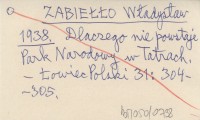 ZABIEŁŁO Władysław
1938. Dlaczego nie powstaje
Park Narodowy w Tatrach.
– Łowiec Polski 31: 304–
–305.